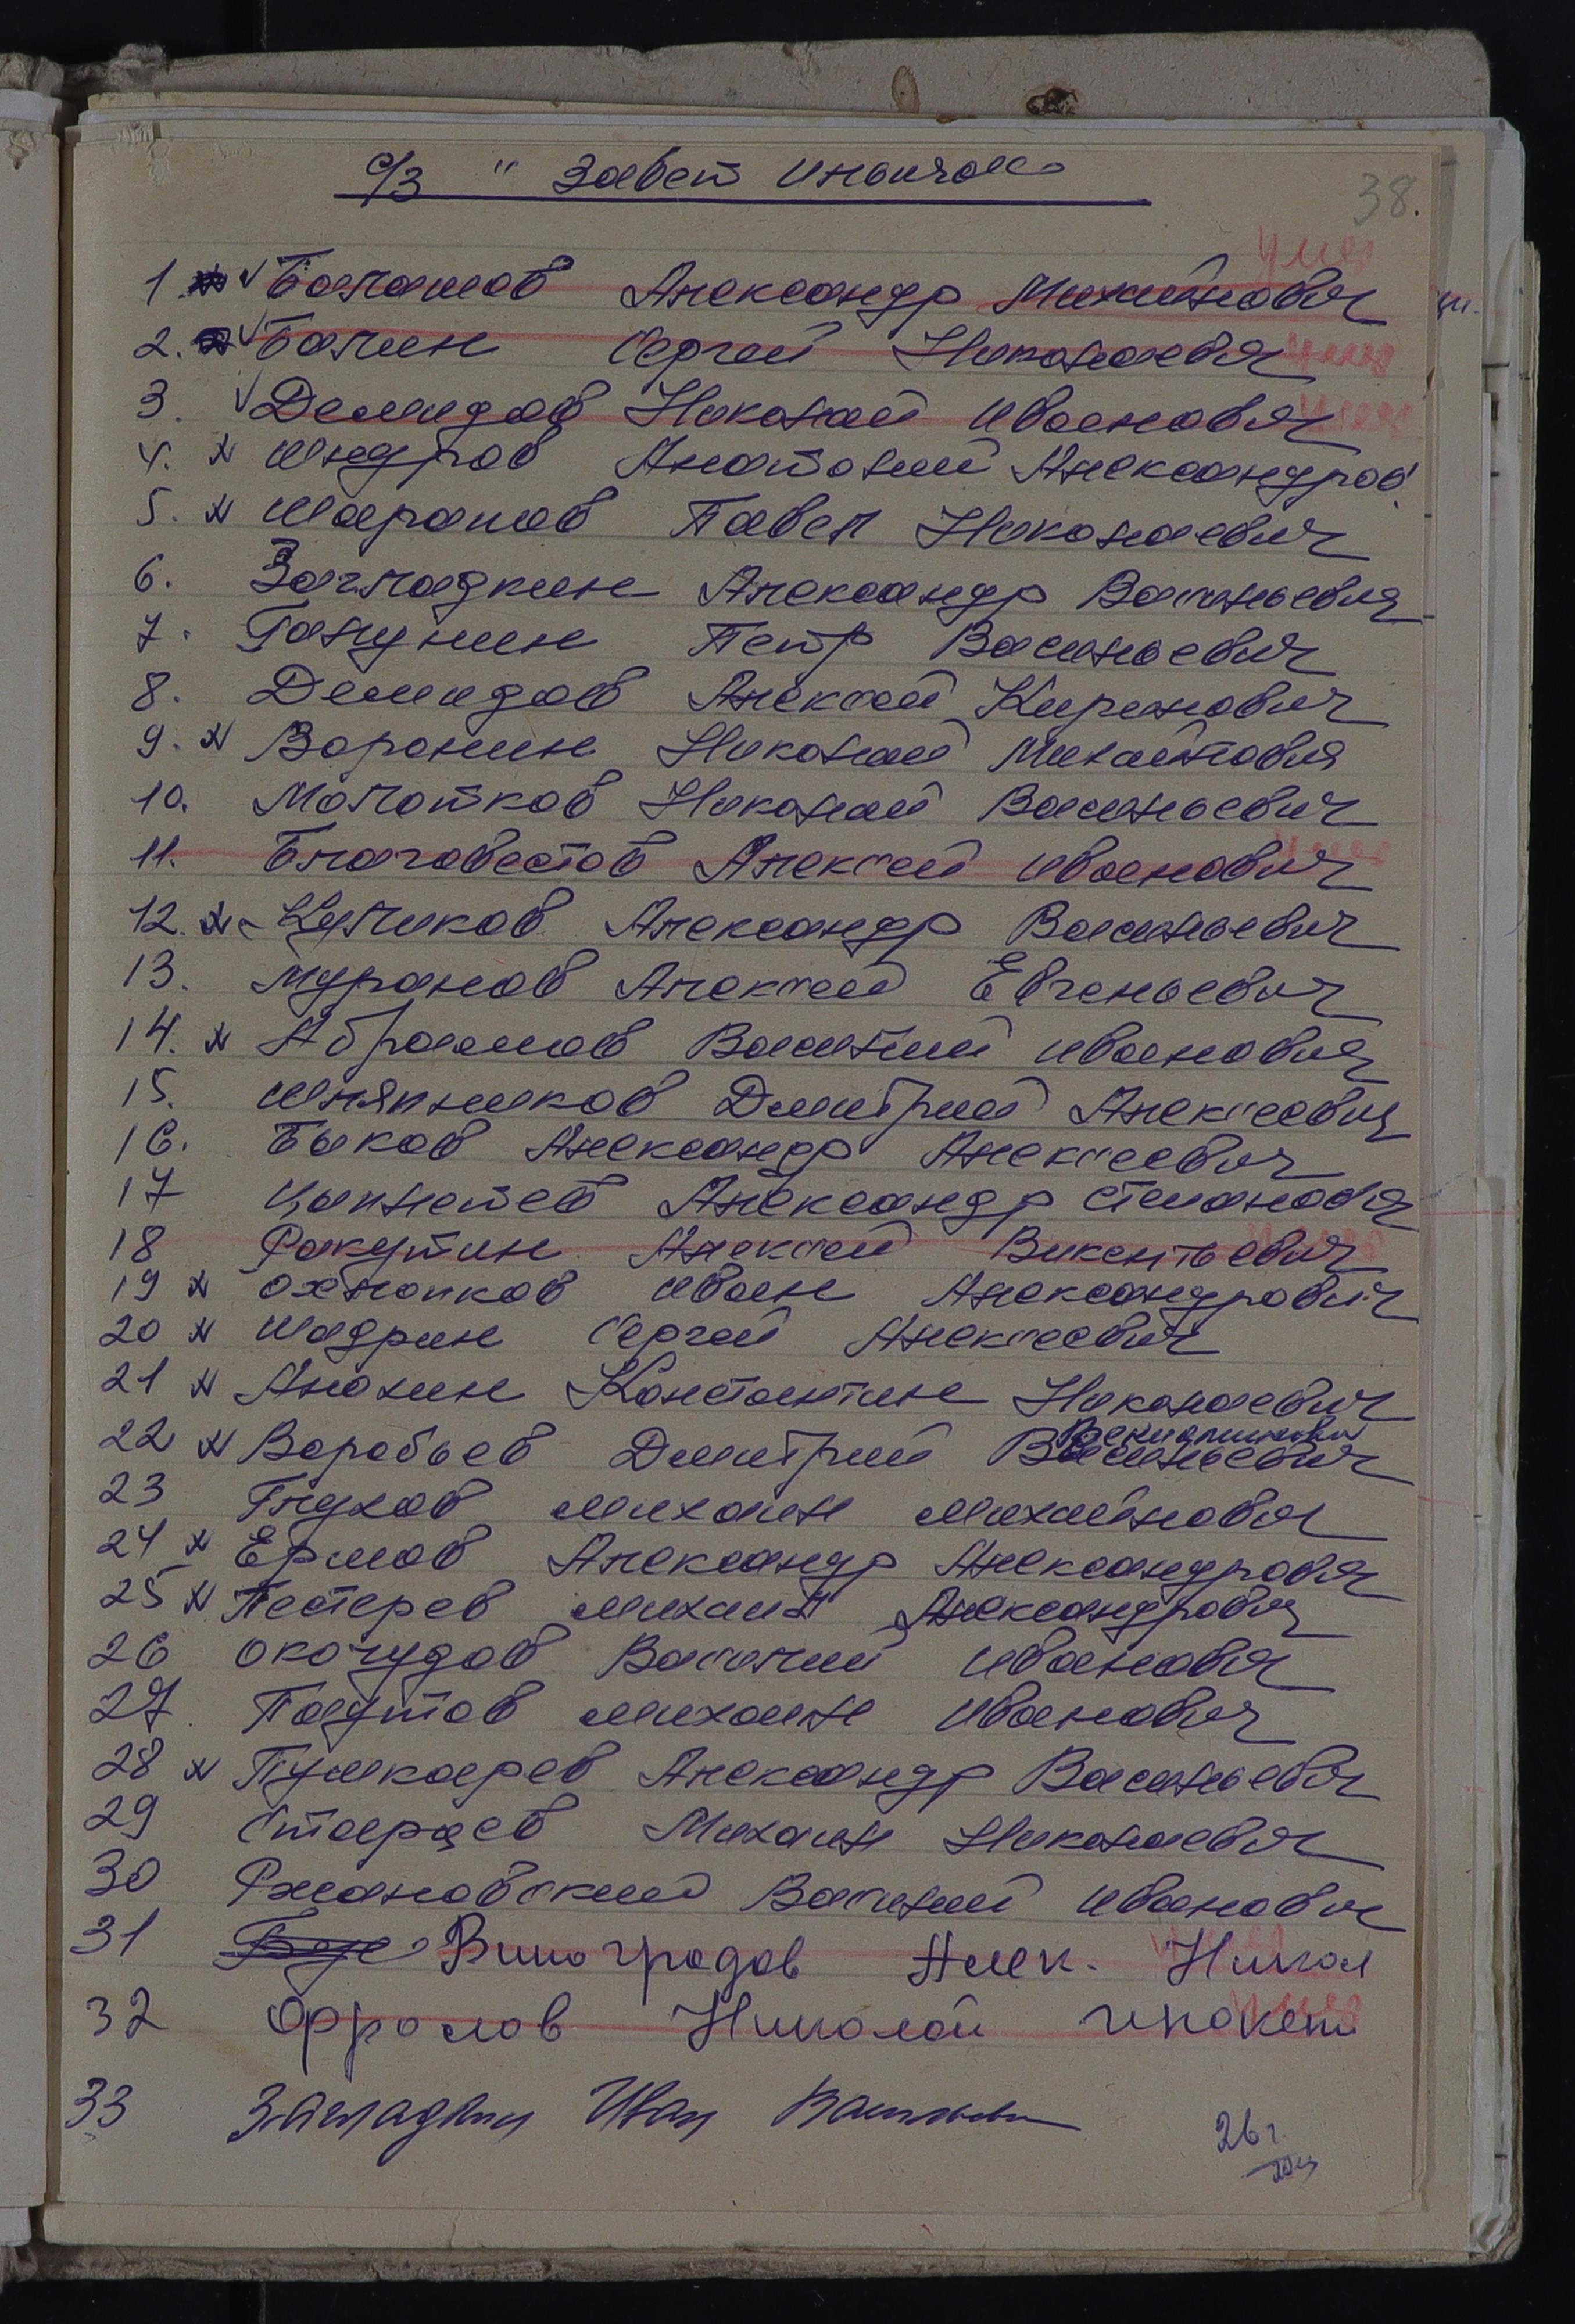 с/з "Завет Ильича"
38.
умер
1. Балашов Александр Михайлович
2. Балин Сергей Николаевич умер
3. Демидов Николай Иванович умер
4. х Шндров Анатолий Александров.
5. х Шарапов Павел Николаевич
6. Загладкин Александр Васильевич
7. Галунин Петр Васильевич
8. Демидов Алексей Кирилович
9. х Воронин Николай Михайлович
10. Молотков Николай Васильевич
11. Благовестов Алексей Иванович умер
12. х Куликов Александр Васильевич
13. Муранов Алексей Евгеньевич
14. х Абрамов Василий Иванович
15. Шляпников Дмитрий Алексеевич
16. Быков Александр Алексеевич
17 Цыплетев Александр Степанович
18 Ракутин Алексей Викентьевич умер
19 х Охлопков Иван Александрович
20 х Шадрин Сергей Алексеевич
21 х Анохин Константин Николаевич
22 х Воробьев Дмитрий Васильевич
23 Глухов Михаил Михайлович
24 х Ермов Александр Александрович
25 х Пестерев Михаил Александрович
26 Окочудов Василий Иванович
27. Паутов Михаил Иванович
28 х Пушкарев Александр Васильевич
29 Старцев Михаил Николаевич
30 Ржановский Василий Иванович
31 Виноградов Алек. Никол умер
32 Фролов Николай Инокент умер
33 Загладкин Иван Васильевич
26 г.